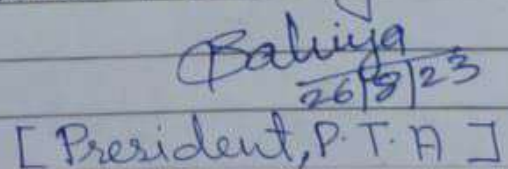 Bahiya
26|8|23
[ President, P.T.A ]